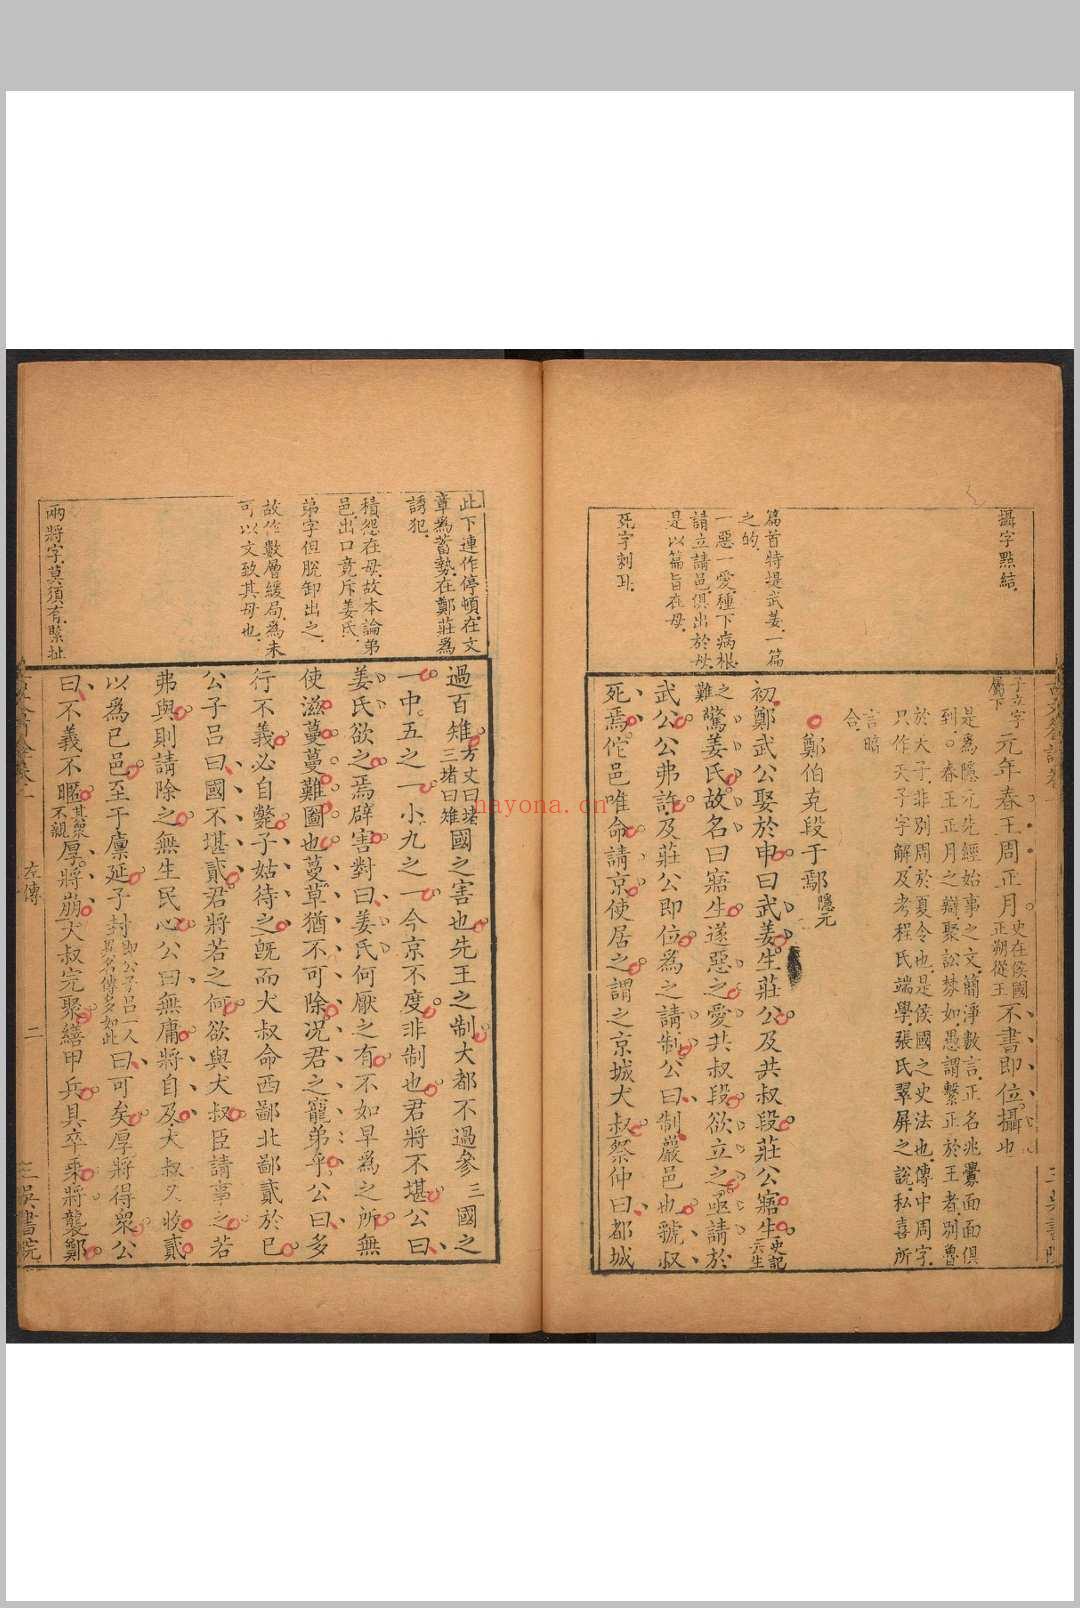 攝字點結
篇首特提武姜一篇
之的
一惡一愛種下病根
請立請邑俱出於母
是以篇旨在母
死字刺耳
子立字
屬下
元年春王周正月
史在侯國
正朔從王
不書即位攝也
是為隱元先經始事之文簡淨數言正名兆釁面面俱
到○春王正月之辯聚訟棼如愚謂繫正於王者別魯
於大子非別周於夏令也是侯國之史法也傳中周字
只作天子字解及考程氏端學張氏翠屏之說私喜所
言暗
合
鄭伯克段于鄢隱元
初鄭武公娶於申曰武姜生莊公及共叔段莊公寤生
史記
云生
之
難
驚姜氏故名曰寤生遂惡之愛共叔段欲立之亟請於
武公公弗許及莊公即位為之請制公曰制嚴邑也虢叔
死焉佗邑唯命請京使居之謂之京城大叔祭仲曰都城
此下連作停頓在文
章為蓄勢在鄭莊為
誘犯
積怨在母故本論弟
邑出口竟斥姜氏
弟字但脫卸出之
故作數層緩局為末
可以文致其母也
兩將字莫須有緊扯
過百雉
方丈曰堵
三堵曰雉
國之害也先王之制大都不過參三國之
一中五之一小九之一今京不度非制也君將不堪公曰
姜氏欲之焉辟害對曰姜氏何厭之有不如早為之所無
使滋蔓蔓難圖也蔓草猶不可除况君之寵弟乎公曰多
行不義必自斃子姑待之既而大叔命西鄙北鄙貳於己
公子呂曰國不堪貳君將若之何欲與大叔臣請事之若
弗與則請除之無生民心公曰無庸將自及大叔又收貳
以為己邑至于廩延子封
即公子呂一人
異名傳多如此
曰可矣厚將得衆公
曰不義不暱
其衆
不親
厚將崩大叔完聚繕甲兵具卒乘將襲鄭
左傳
二
三吳書院
nayona.cn